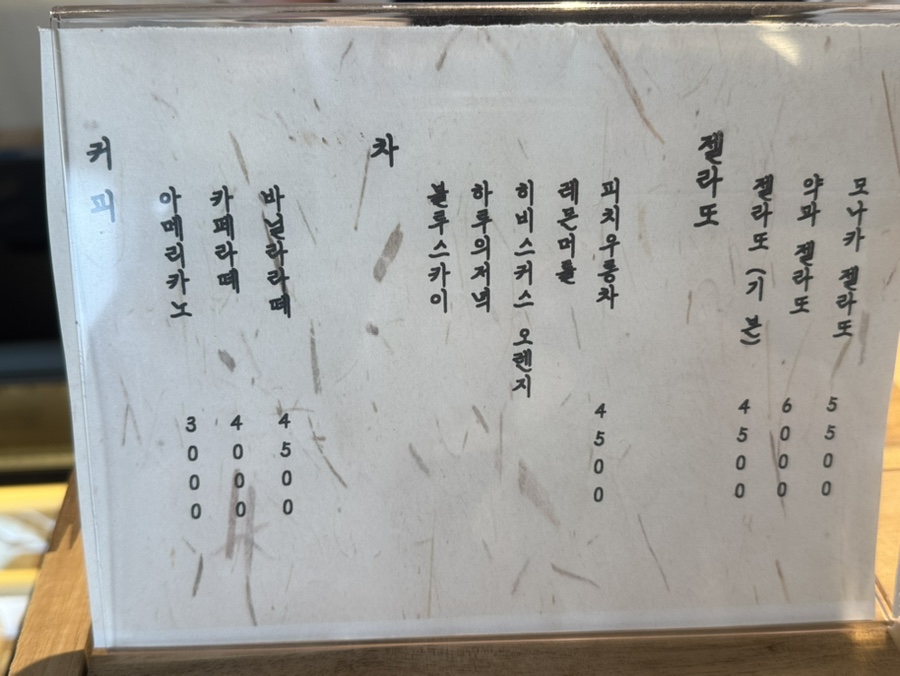 커피
아메리카노 3000
카페라떼 4000
바닐라라떼 4500
차
블루스카이
하루의저녁
히비스커스 오렌지
레몬머틀
피치우롱차 4500
젤라또
젤라또 (기본) 4500
약과 젤라또 6000
모나카 젤라또 5500